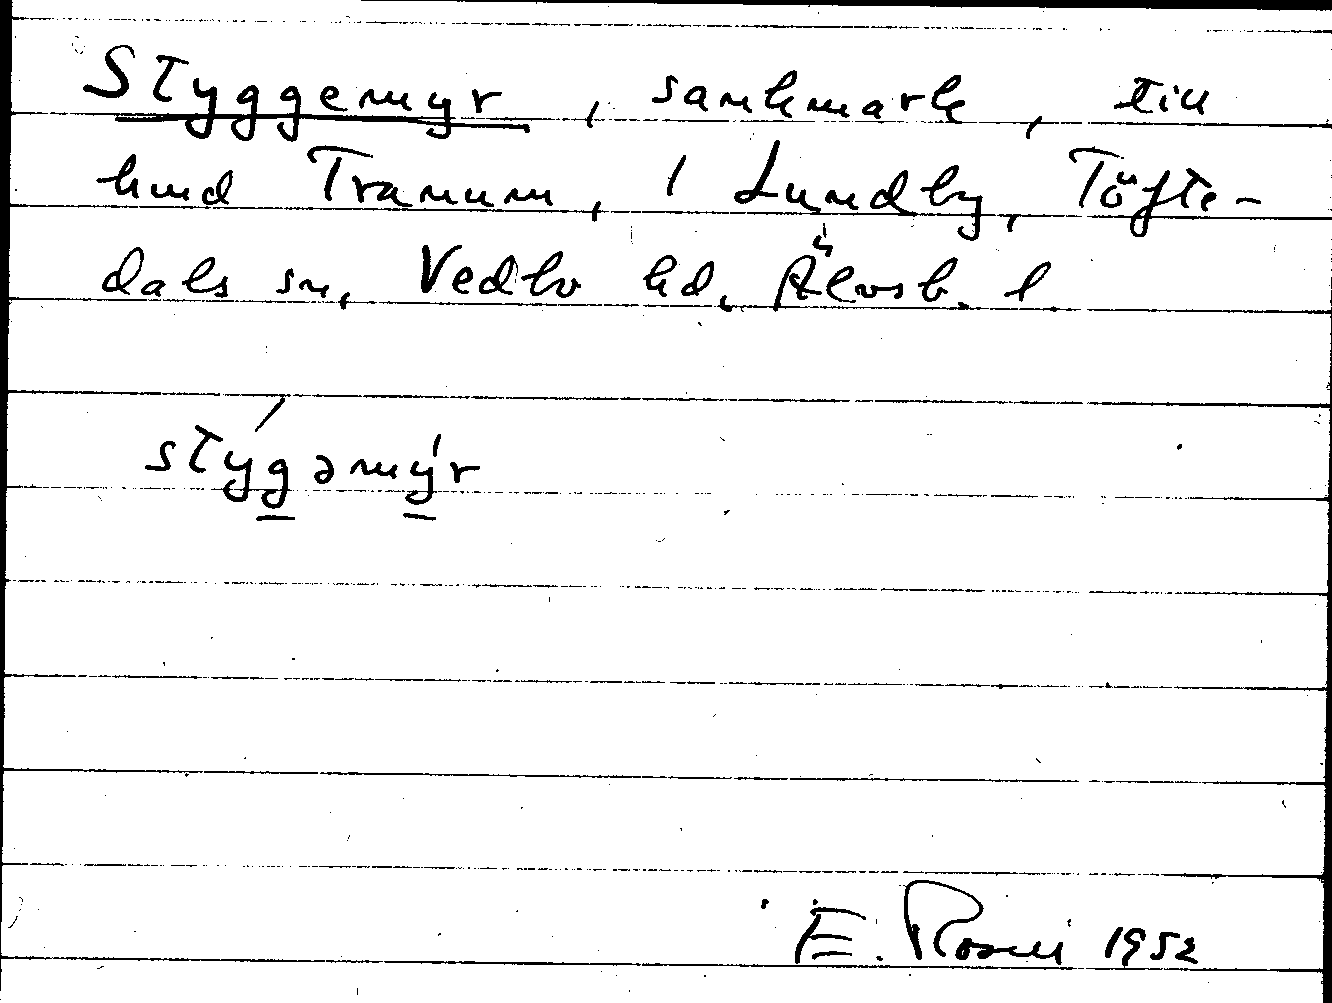 Styggemyr, sankmark, till
hmd Tranum, 1 Lundby, Töfte-
dals sn, Vedbo hd, Älvsb. l.
stýgəmýr
E. Rosell 1952